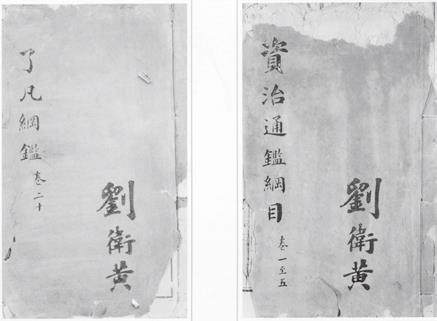 了凡綱鑑 卷二十
劉衛黄
資治通鑑綱目 卷一至五
劉衛黄